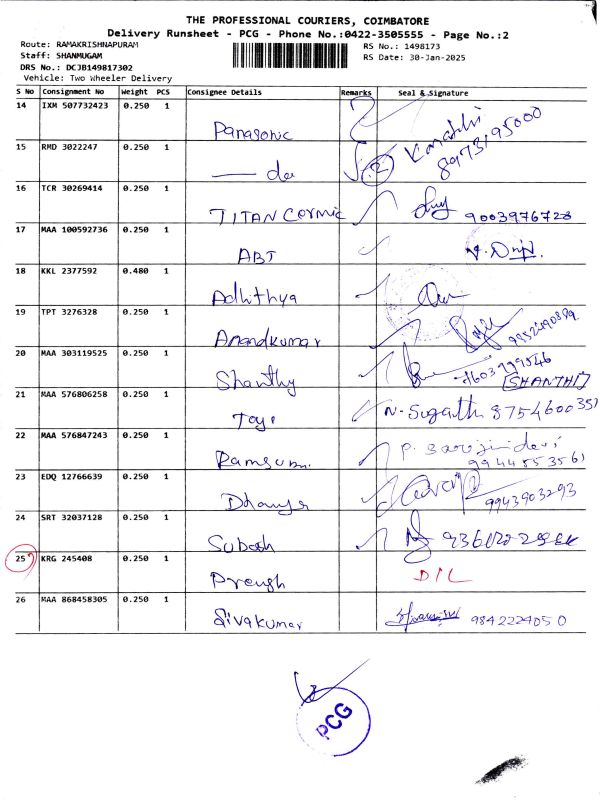 THE PROFESSIONAL COURIERS, COIMBATORE
Delivery Runsheet - PCG - Phone No.:0422-3505555 - Page No.:2
Route: RAMAKRISHNAPURAM
RS No.: 1498173
Staff: SHANMUGAM
RS Date: 30-Jan-2025
DRS No.: DCJB149817302
Vehicle: Two Wheeler Delivery
S No Consignment No Weight PCS Consignee Details Remarks Seal & Signature
14 IXM 507732423 0.250 1 Panasonic
8973195000
15 RMD 3022247 0.250 1 do 2
16 TCR 30269414 0.250 1 TITAN 9003976728
17 MAA 100592736 0.250 1 ABT
18 KKL 2377592 0.480 1 Adhithya
19 TPT 3276328 0.250 1 Anandkumar
20 MAA 303119525 0.250 1 Shanthy 7603999546
SHANTHI
21 MAA 576806258 0.250 1 N. Suganthi 8754600351
22 MAA 576847243 0.250 1 P. Sarojinidevi
9944553561
23 EDQ 12766639 0.250 1 9943903293
24 SRT 32037128 0.250 1 Subash
25 KRG 245408 0.250 1 D.I.L
26 MAA 868458305 0.250 1 Sivakumar 9842224050
PCG